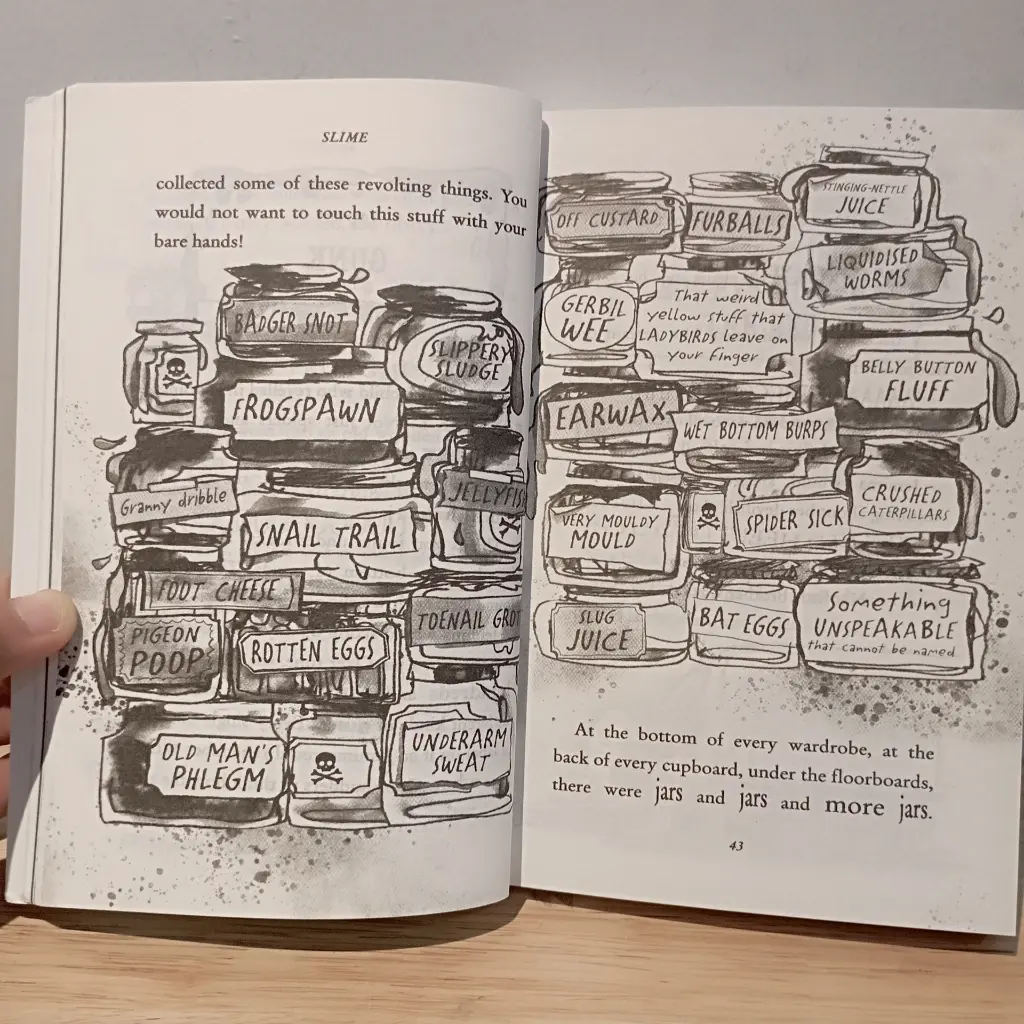 SLIME
collected some of these revolting things. You
would not want to touch this stuff with your
bare hands!
BADGER SNOT
SLIPPERY
SLUDGE
FROGSPAWN
Granny dribble
JELLYFIS
SNAIL TRAIL
FOOT CHEESE
TOENAIL GROT
PIGEON
POOP
ROTTEN EGGS
OLD MAN'S
PHLEGM
UNDERARM
SWEAT
OFF CUSTARD
FURBALLS
STINGING-NETTLE
JUICE
LIQUIDISED
WORMS
GERBIL
WEE
That weird
yellow stuff that
LADYBIRDS leave on
your finger
BELLY BUTTON
FLUFF
EARWAX
WET BOTTOM BURPS
VERY MOULDY
MOULD
SPIDER SICK
CRUSHED
CATERPILLARS
SLUG
JUICE
BAT EGGS
Something
UNSPEAKABLE
that cannot be named
At the bottom of every wardrobe, at the
back of every cupboard, under the floorboards,
there were jars and jars and more jars.
43